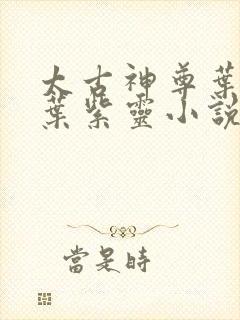 太古神尊葉
葉紫靈小說
當是時